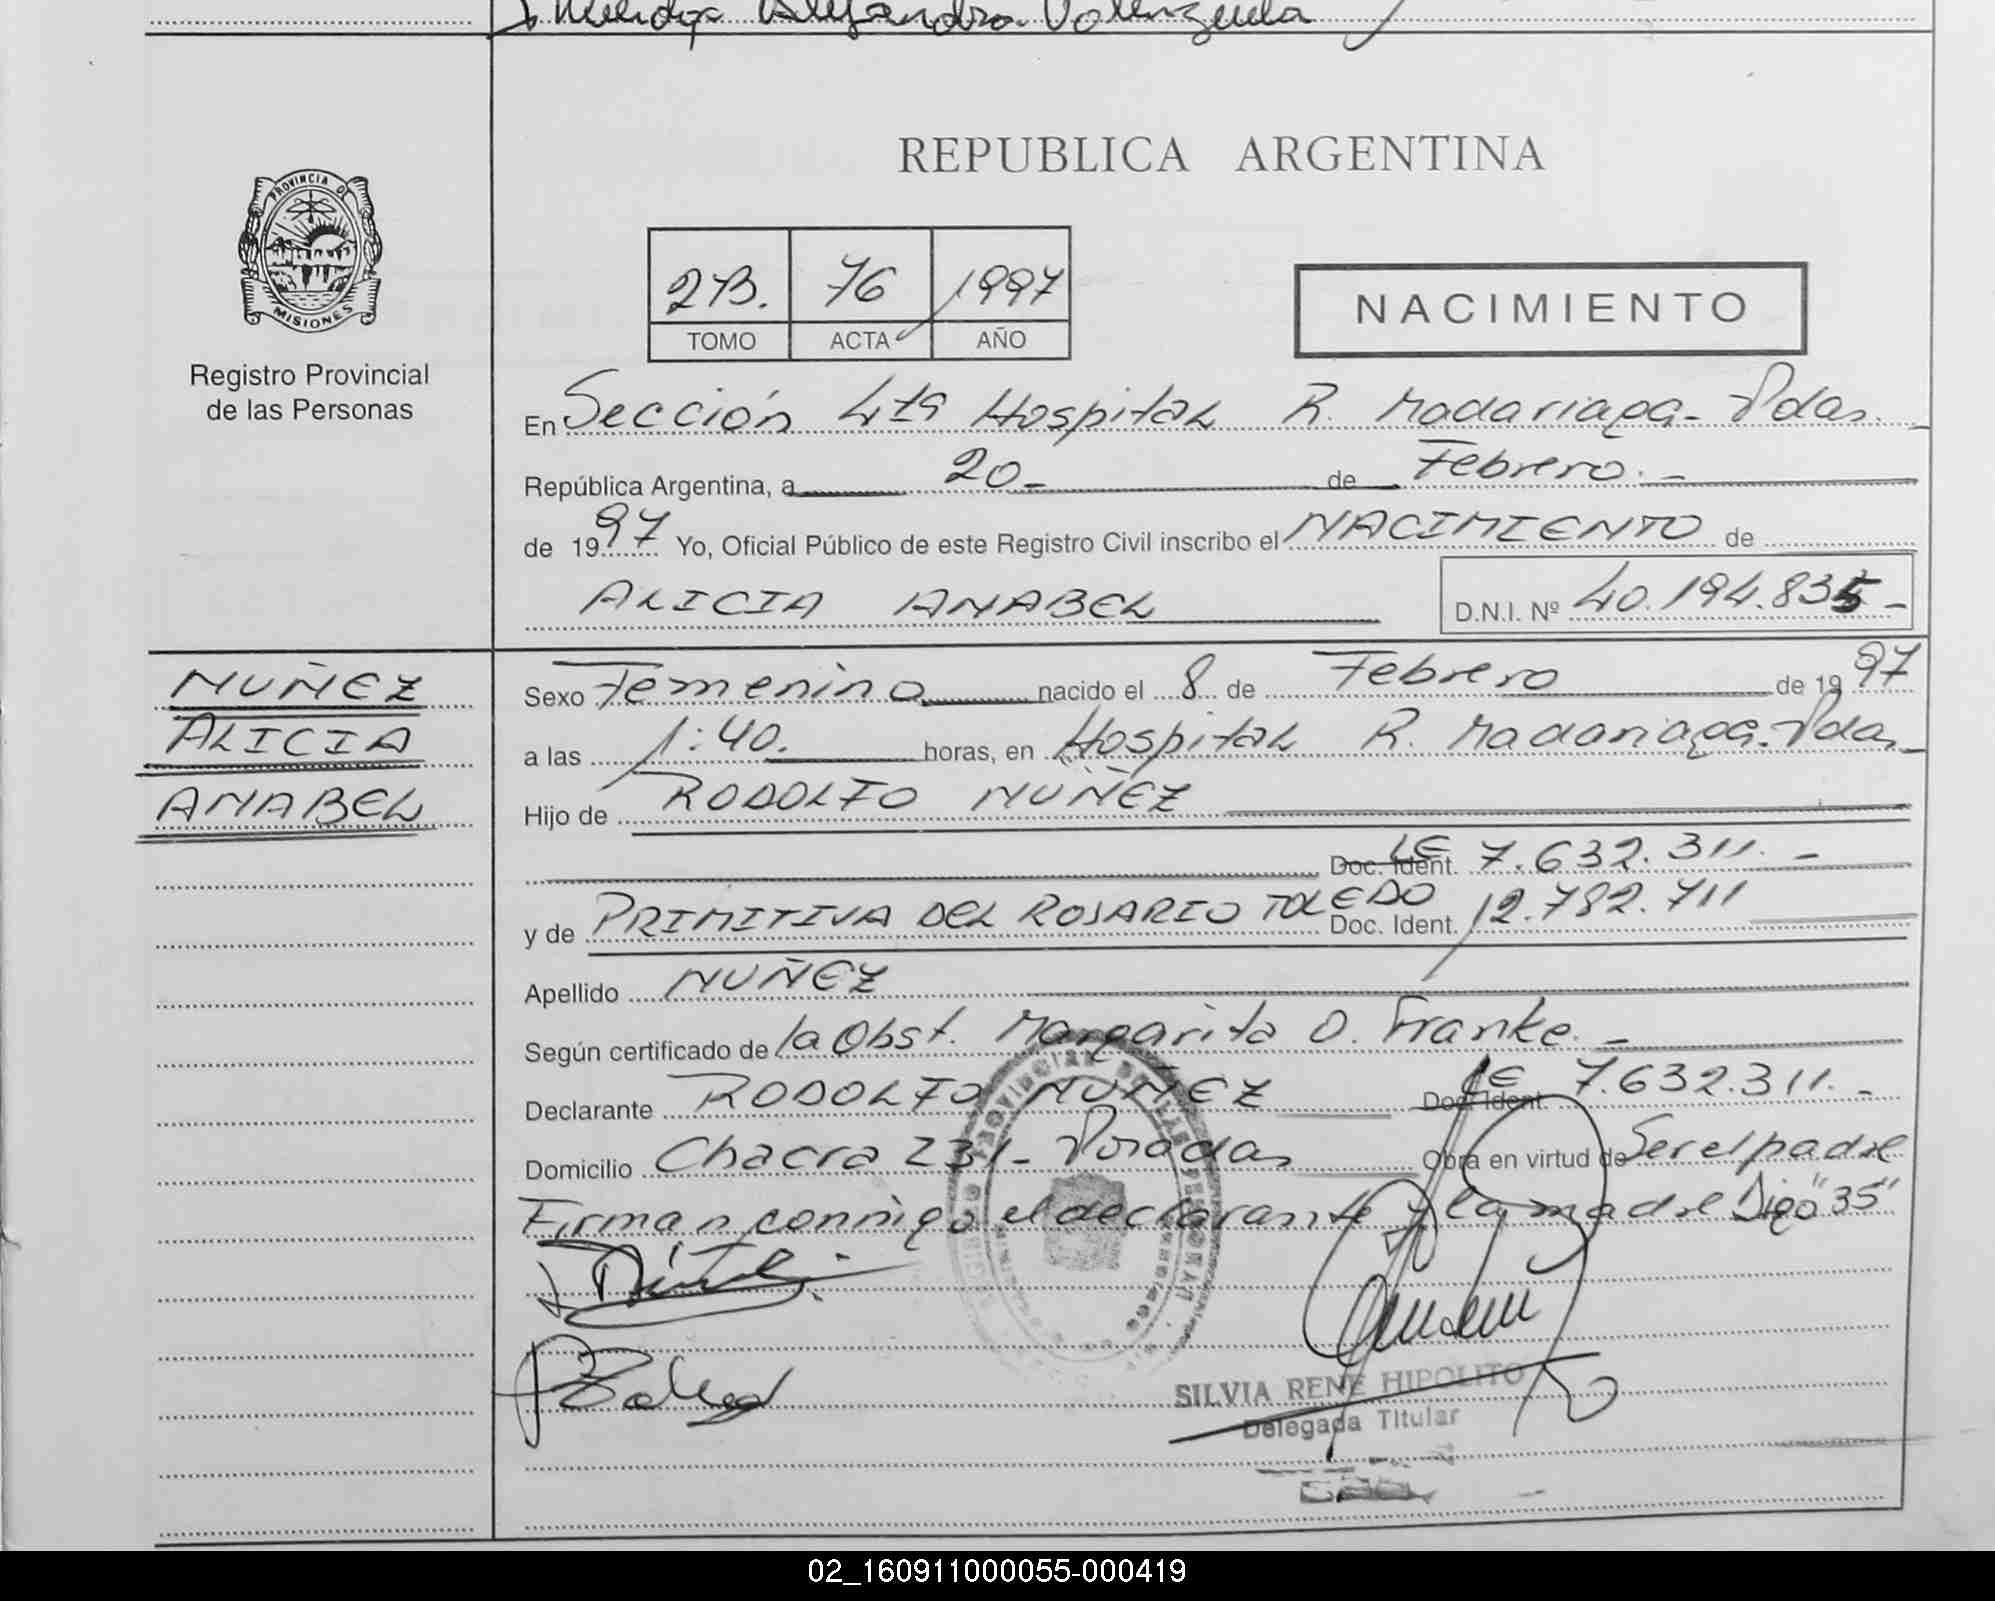 Alejandra Valenzuela
REPUBLICA ARGENTINA
PROVINCIA DE
MISIONES
Registro Provincial
de las Personas
2B. 76 1997
TOMO ACTA AÑO
NACIMIENTO
En Sección 4ta Hospital R. Madariaga - Pdas.
República Argentina, a 20 - de Febrero. -
de 1997 Yo, Oficial Público de este Registro Civil inscribo el NACIMIENTO de
ALICIA ANABEL D.N.I. Nº 40.194.835 -
NUÑEZ
ALICIA
ANABEL
Sexo Femenino nacido el 8 de Febrero de 1997
a las 1:40. horas, en Hospital R. Madariaga - Pdas -
Hijo de RODOLFO NUÑEZ
Doc. Ident. LE 7.632.311. -
y de PRIMITIVA DEL ROSARIO TOLEDO Doc. Ident. 12.782.711
Apellido NUÑEZ
Según certificado de la Obst. Margarita O. Franke. -
Declarante RODOLFO NUÑEZ Doc. Ident. LE 7.632.311. -
Domicilio Chacra 231 - Posadas Obra en virtud de Ser el padre
Firman conmigo el declarante y la madre Digo "35"
SILVIA RENE HIPOLITO
Delegada Titular
02_160911000055-000419